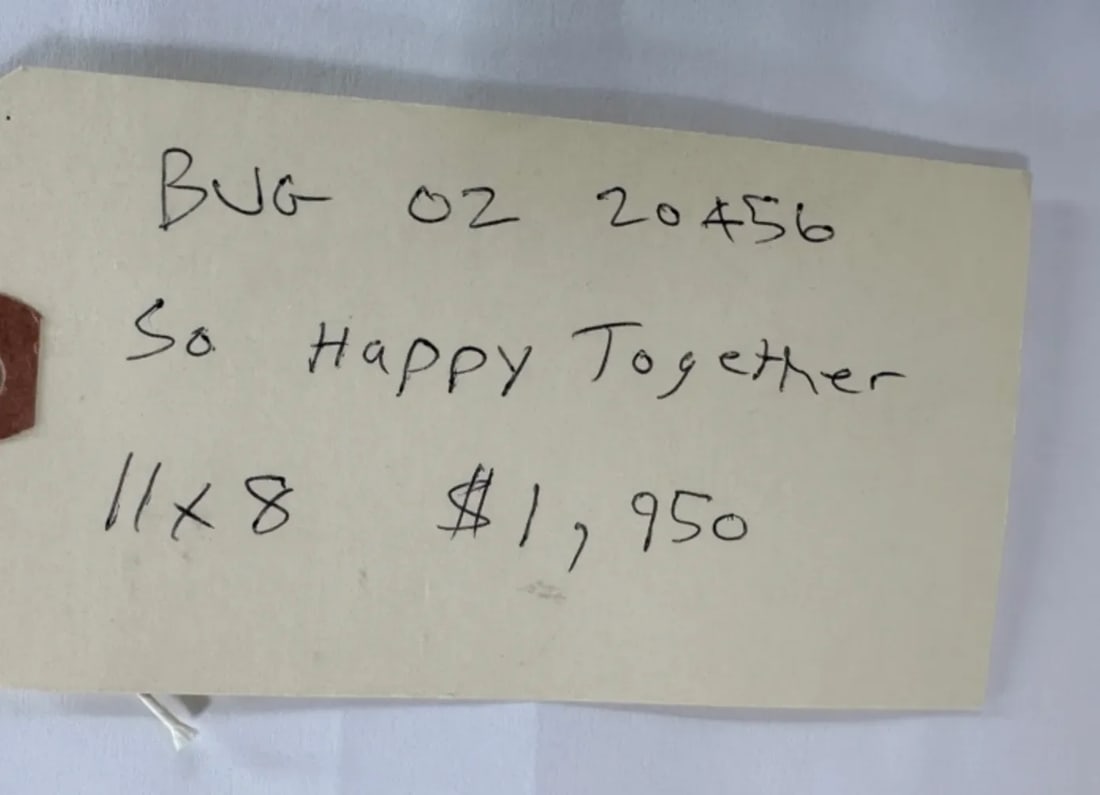 BUG 02 20456
So Happy Together
11x8 $1,950